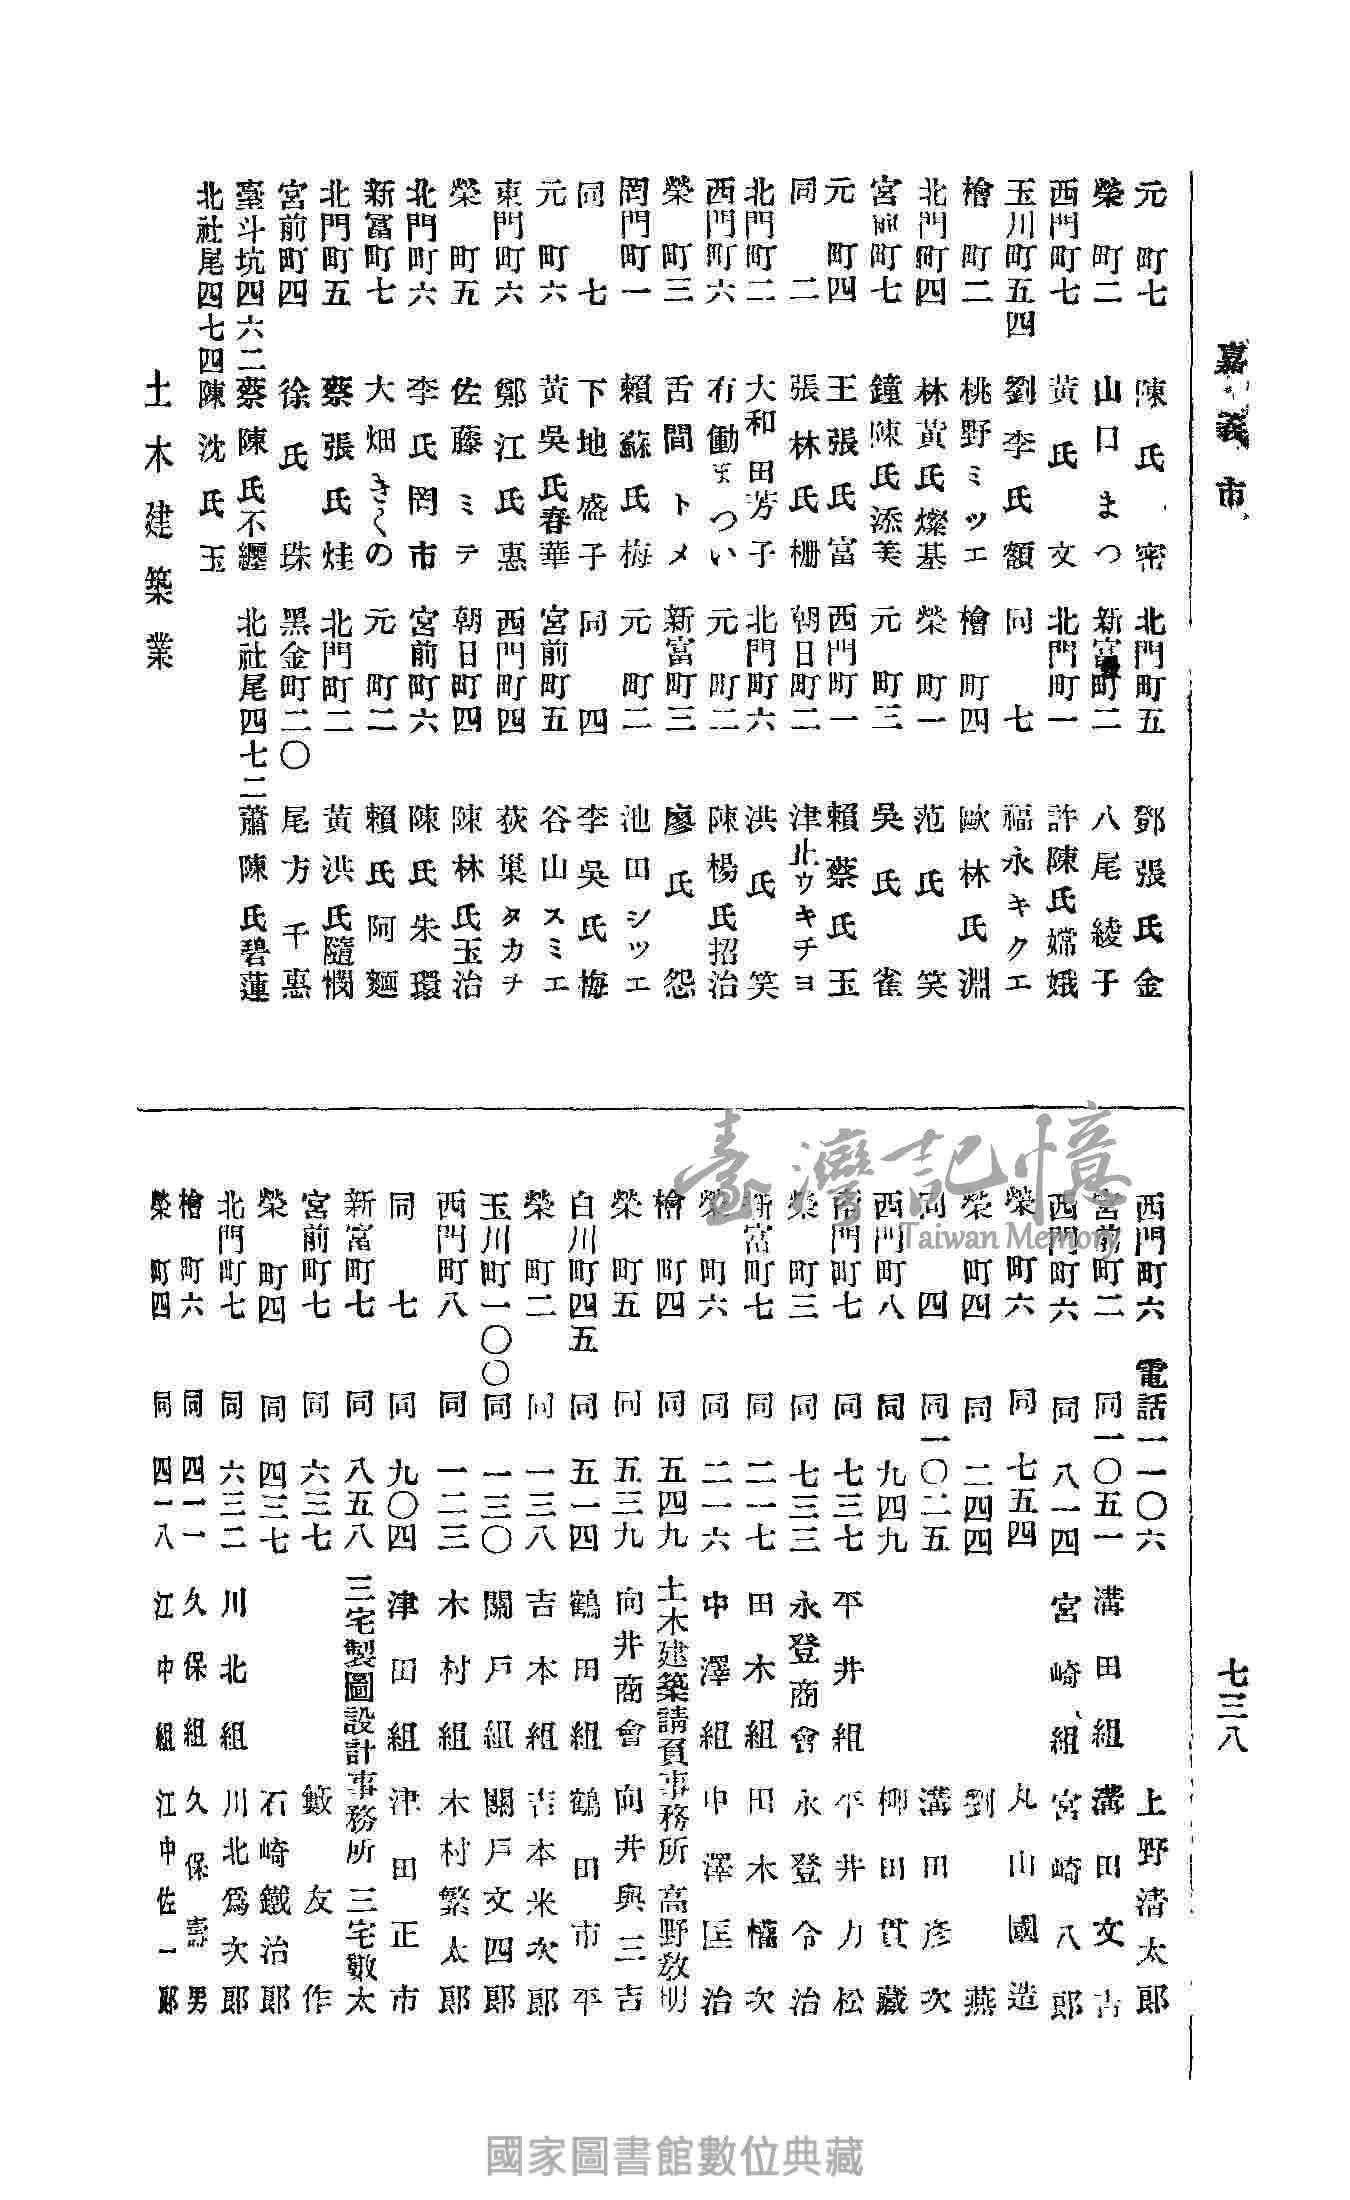 嘉義市
七三八
元町七 陳氏密
榮町二 山口まつ
西門町七 黃氏文
玉川町五四 劉李氏額
檜町二 桃野ミツエ
北門町四 林黃氏燦基
宮前町七 鐘陳氏添美
元町四 王張氏富
同二 張林氏柵
北門町二 大和田芳子
西門町六 有働まつい
榮町三 舌間トメ
西門町一 賴蘇氏梅
同七 下地盛子
元町六 黃吳氏春華
東門町六 鄭江氏惠
榮町五 佐藤ミテ
北門町六 李氏罔市
新富町七 大畑きくの
北門町五 蔡張氏烓
宮前町四 徐氏珠
臺斗坑四六二 蔡陳氏不纒
北社尾四七四 陳沈氏玉
北門町五 鄧張氏金
新富町二 八尾綾子
北門町一 許陳氏嫦娥
同七 福永キクエ
檜町四 歐林氏淵
榮町一 范氏笑
元町三 吳氏雀
西門町一 賴蔡氏玉
朝日町二 津止ウキチヨ
北門町六 洪氏笑
元町二 陳楊氏招治
新富町三 廖氏怨
元町二 池田シツエ
同四 李吳氏梅
宮前町五 谷山スミエ
西門町四 荻巢タカチ
朝日町四 陳林氏玉治
宮前町六 陳氏朱環
元町二 賴氏阿麵
北門町二 黃洪氏隨憫
黑金町二〇 尾方千惠
北社尾四七二 蕭陳氏碧蓮
土木建築業
西門町六 電話一一〇六 上野清太郎
宮前町二 同一〇五一 溝田組 溝田文吉
西門町六 同八一四 宮崎組 宮崎八郎
榮町六 同七五四 丸山國造
榮町四 同二四四 劉燕
同四 同一〇二五 溝田彥次
西門町八 同九四九 柳田貫藏
南門町七 同七三七 平井組 平井力松
榮町三 同七三三 永登商會 永登令治
新富町七 同二一七 田木組 田木橫次
榮町六 同二一六 中澤組 中澤匡治
檜町四 同五四九 土木建築請負事務所 高野敎明
榮町五 同五三九 向井商會 向井與三吉
白川町四五 同五一四 鶴田組 鶴田市平
榮町二 同一三八 吉本組 吉本米次郎
玉川町一〇〇 同一三〇 關戶組 關戶文四郎
西門町八 同一二三 木村組 木村繁太郎
同七 同九〇四 津田組 津田正市
新富町七 同八五八 三宅製圖設計事務所 三宅嫩太
宮前町七 同六三七 籔友作
榮町四 同四三七 石崎鐵治郎
北門町七 同六三二 川北組 川北爲次郎
檜町六 同四一一 久保組 久保壽男
榮町四 同四一八 江中組 江中佐一郎
臺灣記憶
Taiwan Memory
國家圖書館數位典藏